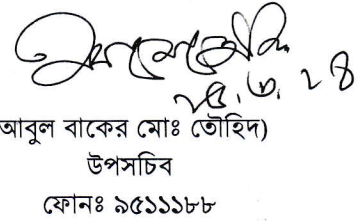 ২৫.৩.২৪
আবুল বাকের মোঃ তৌহিদ)
উপসচিব
ফোনঃ ৯৫১১১৮৮